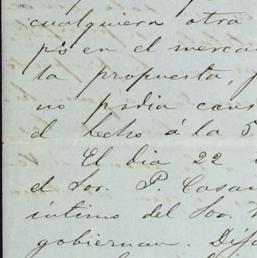 cualquiera otra
pio en el merca
la propuesta,
no podia cons
el hecho á la 5
El dia 22
el Sor. P. Casan
intimo del Sor.
gobiernan. Dij